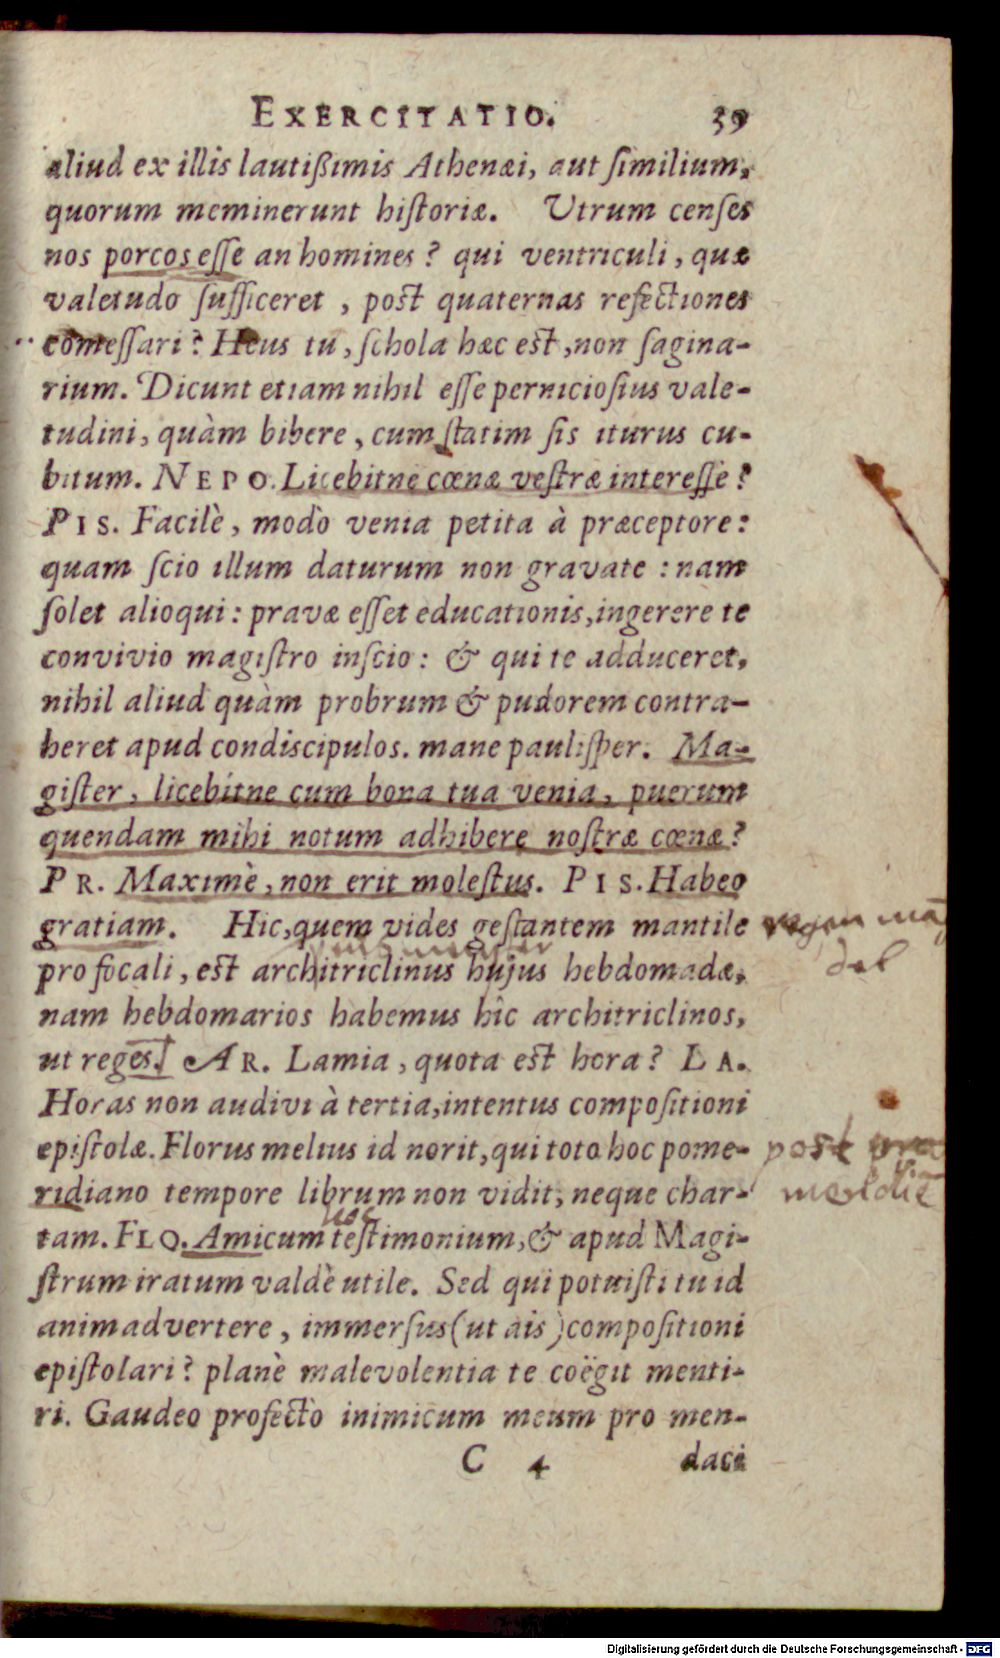 EXERCITATIO. 39
aliud ex illis lautißimis Athenæi, aut ſimilium,
quorum meminerunt hiſtoriæ. Utrum cenſes
nos porcos eſſe an homines? qui ventriculi, quæ
valetudo ſufficeret, poſt quaternas refectiones
comeſſari? Heus tu, ſchola hæc eſt, non ſagina-
rium. Dicunt etiam nihil eſſe pernicioſius vale-
tudini, quàm bibere, cum ſtatim ſis iturus cu-
bitum. NEPO. Licebitne cœnæ veſtræ intereſſe?
PIS. Facilè, modò venia petita à præceptore:
quam ſcio illum daturum non gravate: nam
ſolet alioqui: pravæ eſſet educationis, ingerere te
convivio magiſtro inſcio: & qui te adduceret,
nihil aliud quàm probrum & pudorem contra-
heret apud condiscipulos. mane pauliſper. Ma-
giſter, licebitne cum bona tua venia, puerum
quendam mihi notum adhibere noſtræ cœnæ?
PR. Maximè, non erit moleſtus. PIS. Habeo
gratiam. Hic, quem vides geſtantem mantile
pro focali, eſt architriclinus hujus hebdomadæ,
nam hebdomarios habemus hîc architriclinos,
ut reges. AR. Lamia, quota eſt hora? LA.
Horas non audivi à tertia, intentus compoſitioni
epiſtolæ. Florus melius id norit, qui toto hoc pome-
post
ridiano tempore librum non vidit, neque char-
tam. FLO. Amicum teſtimonium, & apud Magi-
ſtrum iratum valdè utile. Sed qui potuiſti tu id
animadvertere, immerſus (ut ais) compoſitioni
epiſtolari? planè malevolentia te coëgit menti-
ri. Gaudeo profectò inimicum meum pro men-
C 4 daci
Digitalisierung gefördert durch die Deutsche Forschungsgemeinschaft - DFG